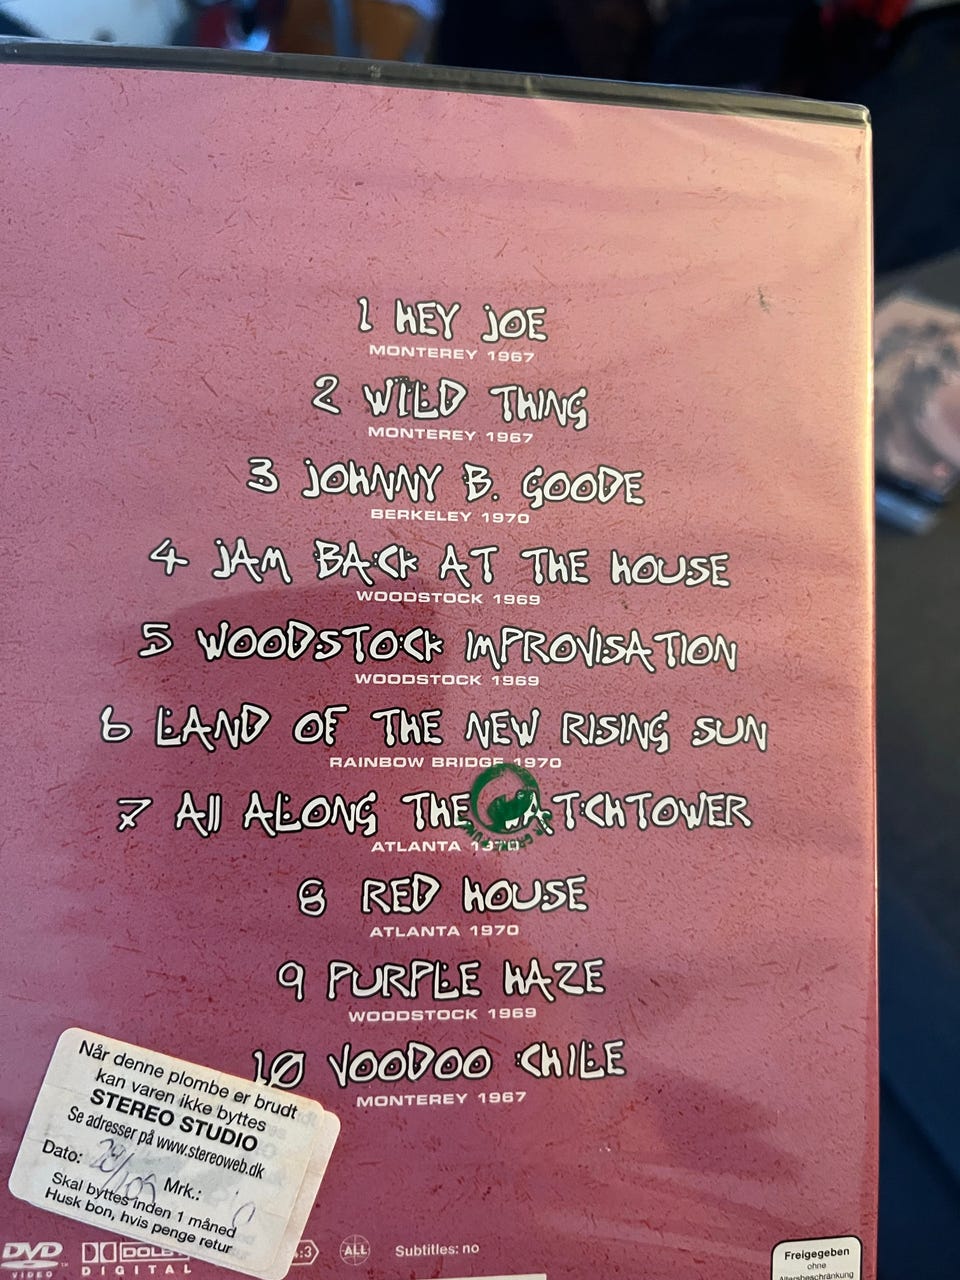 1 HEY JOE
MONTEREY 1967
2 WILD THING
MONTEREY 1967
3 JOHNNY B. GOODE
BERKELEY 1970
4 JAM BACK AT THE HOUSE
WOODSTOCK 1969
5 WOODSTOCK IMPROVISATION
WOODSTOCK 1969
6 LAND OF THE NEW RISING SUN
RAINBOW BRIDGE 1970
7 All ALONG THE WATCHTOWER
ATLANTA 1970
8 RED HOUSE
ATLANTA 1970
9 PURPLE HAZE
WOODSTOCK 1969
10 VOODOO CHILE
MONTEREY 1967
Når denne plombe er brudt
kan varen ikke byttes
STEREO STUDIO
Se adresser på www.stereoweb.dk
Dato: Mrk.:
Skal byttes inden 1 måned
Husk bon, hvis penge retur
DVD VIDEO
DOLBY DIGITAL
4:3
ALL
Subtitles: no
Freigegeben
ohne
Altersbeschränkung